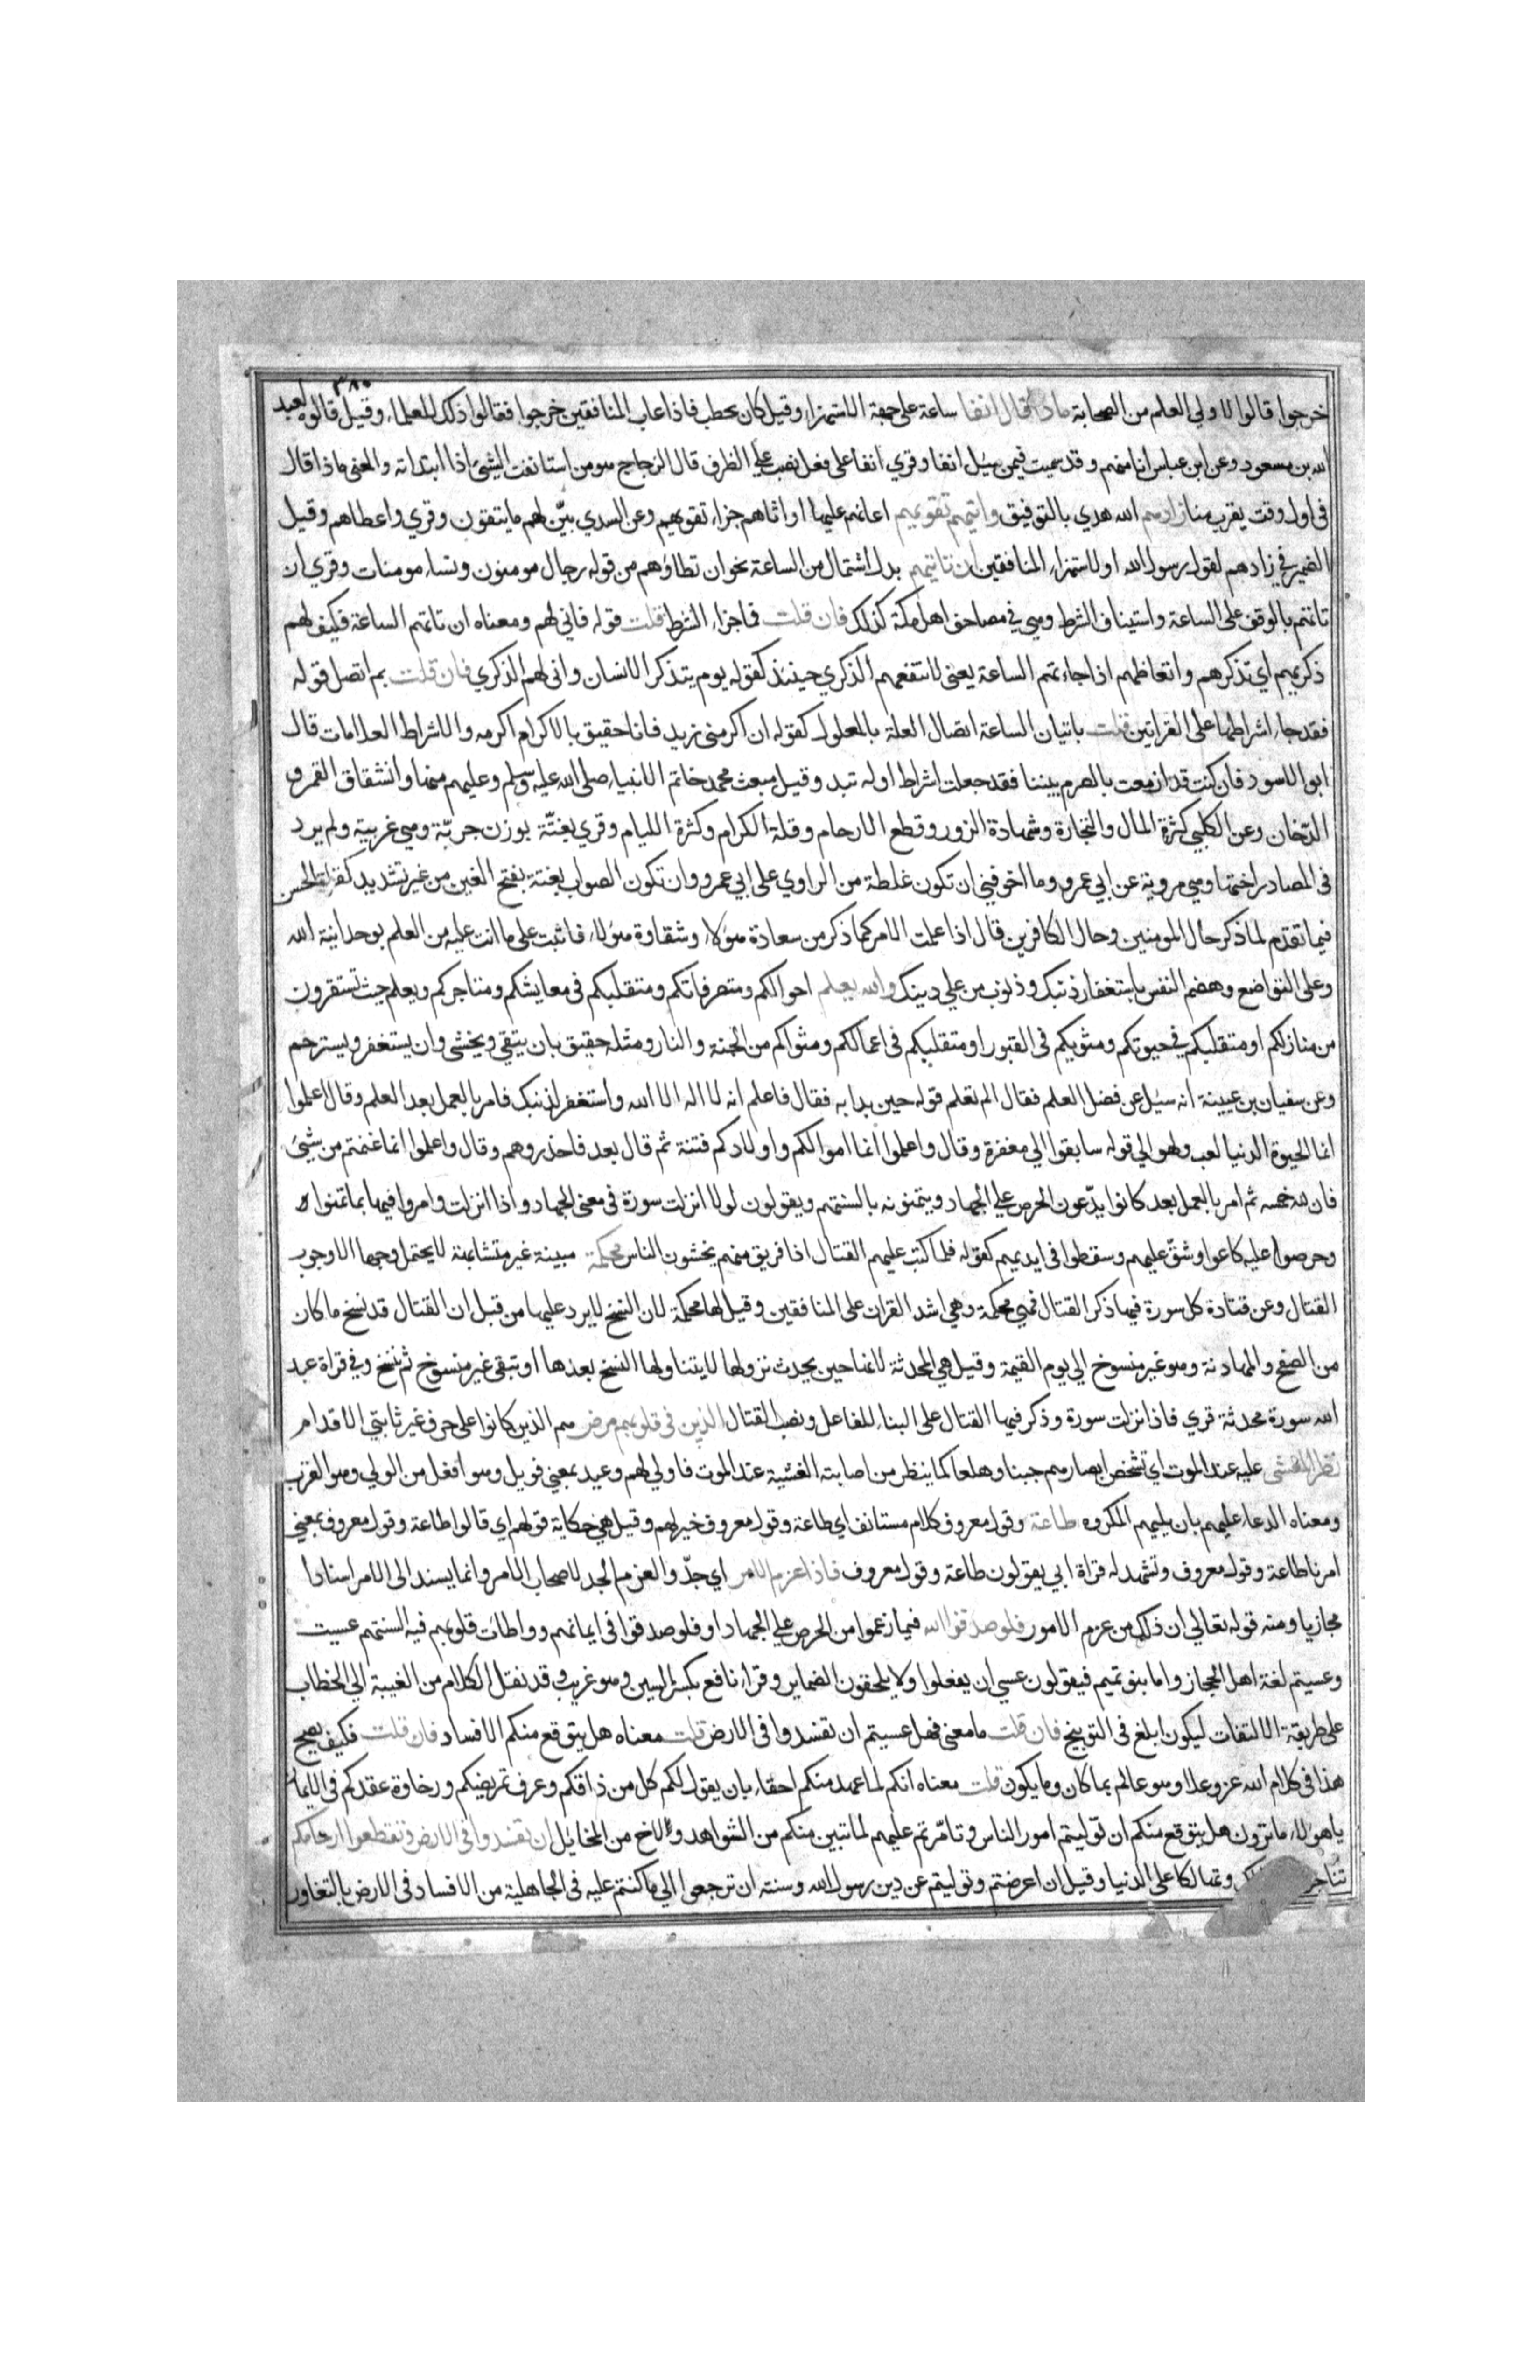 ٣٨٠
خرجوا قالوا لاولي العلم من الصحابة ماذا قال انفا ساعة على جهة الاستهزاء وقيل كان يخطب فاذا عاب المنافقين خرجوا فقالوا ذلك للعلماء وقيل قالوه لعبد
الله بن مسعود وعن ابن عباس انا منهم وقد سميت فيمن سئل انفا وقري انفا على فعل نصب علي الظرف قال الزجاج هو من استانفت الشيئ اذا ابتداته والمعنى ماذا قال
في اول وقت يقرب منا زادهم الله هدي بالتوفيق واتيهم تقويهم اعانهم عليها او اتاهم جزاء تقويهم وعن السدي بيّن لهم ما يتقون وقري واعطاهم وقيل
الضمير في زادهم لقول رسول الله او لاستهزاء المنافقين ان تاتيهم بدل اشتمال من الساعة نحو ان تطاؤهم من قوله رجال مومنون ونساء مومنات وقري ان
تاتهم بالوقف على الساعة واستيناف الشرط وهي في مصاحف اهل مكة كذلك فان قلت فما جزاء الشرط قلت قوله فاني لهم ومعناه ان تاتهم الساعة فكيف لهم
ذكريهم اي تذكرهم واتعاظهم اذا جاءتهم الساعة يعني لا تنفعهم الذكري حينئذ كقوله يوم يتذكر الانسان وانى لهم الذكري فان قلت بم اتصل قوله
فقد جاء اشراطها على القراتين قلت باتيان الساعة اتصال العلة بالمعلول كقوله ان اكرمني زيد فانا حقيق بالاكرام اكرمه والاشراط العلامات قال
ابو الاسود فان كنت قد ازمعت بالصرم بيننا فقد جعلت اشراط اوله تبد وقيل مبعث محمد خاتم الانبياء صلى الله عليه وسلم وعليهم منها وانشقاق القمر و
الدّخان وعن الكلبي كثرة المال والتجارة وشهادة الزور وقطع الارحام وقلة الكرام وكثرة الليام وقري بغتّة بوزن جربّة وهي غريبة ولم يرد
في المصادر اختها وهي مروية عن ابي عمرو وما اخوفني ان تكون غلطة من الراوي على ابي عمرو وان تكون الصواب بغتة بفتح الغين من غير تشديد كقراة الحسن
فيما تقدم لما ذكر حال المومنين وحال الكافرين قال اذا علمت الامر كما ذكر من سعادة هولاء وشقاوة هولاء فاثبت على ما انت عليه من العلم بوحدانية الله
وعلى التواضع وهضم النفس باستغفار ذنبك وذنوب من علي دينك والله يعلم احوالكم ومتصرفاتكم ومتقلبكم في معايشكم ومتاجركم ويعلم حيث تستقرون
من منازلكم او متقلبكم في حيوتكم ومثويكم في القبور او متقلبكم في اعمالكم ومثواكم من الجنة والنار ومثله حقيق بان يتقي ويخشى وان يستغفر ويسترحم
وعن سفيان بن عيينة انه سئل عن فضل العلم فقال الم تعلم قوله حين بدا به فقال فاعلم انه لا اله الا الله واستغفر لذنبك فامر بالعمل بعد العلم وقال اعلموا
انما الحيوة الدنيا لعب ولهو الي قوله سابقوا الي مغفرة وقال واعلموا انما اموالكم واولادكم فتنة ثم قال بعد فاحذروهم وقال واعلموا انما غنمتم من شيئ
فان لله خمسه ثم امر بالعمل بعد كانوا يدّعون الحرص علي الجهاد ويتمنونه بالسنتهم ويقولون لولا انزلت سورة في معنى الجهاد واذا انزلت وامروا فيها بما تمنواه
وحرصوا عليه كاعوا وشقّ عليهم وسقطوا في ايديهم كقوله فلما كتب عليهم القتال اذا فريق منهم يخشون الناس محكمة مبينة غير متشابهة لا يحتمل وجها الا وجوب
القتال وعن قتادة كل سورة فيها ذكر القتال فهي محكمة وهي اشد القران على المنافقين وقيل لها محكمة لان النسخ لا يرد عليها من قبل ان القتال قد نسخ ما كان
من الصفح والمهادنة وهو غير منسوخ الي يوم القيمة وقيل هي المحدثة لانها حين يحدث نزولها لا يتناولها النسخ بعدها او تبقى غير منسوخ ثم تنسخ وفي قراة عبد
الله سورة محدثة قري فاذا انزلت سورة وذكر فيها القتال على البناء للفاعل ونصب القتال الذين في قلوبهم مرض هم الذين كانوا على حرف غير ثابتي الاقدام
نظر المغشى عليه عند الموت اي تشخص ابصارهم جبنا وهلعا كما ينظر من اصابته الغشية عند الموت فاولي لهم وعيد بمعني فويل وهو افعل من الولي وهو القرب
ومعناه الدعاء عليهم بان يليهم المكروه طاعة وقول معروف كلام مستانف اي طاعة وقول معروف خير لهم وقيل هي حكاية قولهم اي قالوا طاعة وقول معروف بمعني
امرنا طاعة وقول معروف وتشهد له قراة ابي يقولون طاعة وقول معروف فاذا عزم الامر اي جدّ والعزم الجد لاصحاب الامر وانما يسند الى الامر اسنادا
مجازيا ومنه قوله تعالي ان ذلك من عزم الامور فلو صدقوا الله فيما زعموا من الحرص علي الجهاد او فلو صدقوا في ايمانهم وواطات قلوبهم فيه السنتهم عسيت
وعسيتم لغة اهل الحجاز واما بنو تميم فيقولون عسي ان يفعلوا ولا يلحقون الضماير وقراء نافع بكسر السين وهو غريب وقد نقل الكلام من الغيبة الي الخطاب
على طريقة الالتفات ليكون ابلغ في التوبيخ فان قلت ما معنى فهل عسيتم ان تفسدوا في الارض قلت معناه هل يتوقع منكم الافساد فان قلت فكيف يصح
هذا في كلام الله عز وعلا وهو عالم بما كان وما يكون قلت معناه انكم لما عهد منكم احقاء بان يقول لكم كل من ذاقكم وعرف تمريضكم ورخاوة عقدكم في الايمان
يا هولاء ما ترون هل يتوقع منكم ان توليتم امور الناس وتامّرتم عليهم لما تبين منكم من الشواهد ولاخ من المخائل ان تفسدوا في الارض وتقطعوا ارحامكم
وتهالكا على الدنيا وقيل ان اعرضتم وتوليتم عن دين رسول الله وسنته ان ترجعوا الي ما كنتم عليه في الجاهلية من الافساد في الارض بالتغاور